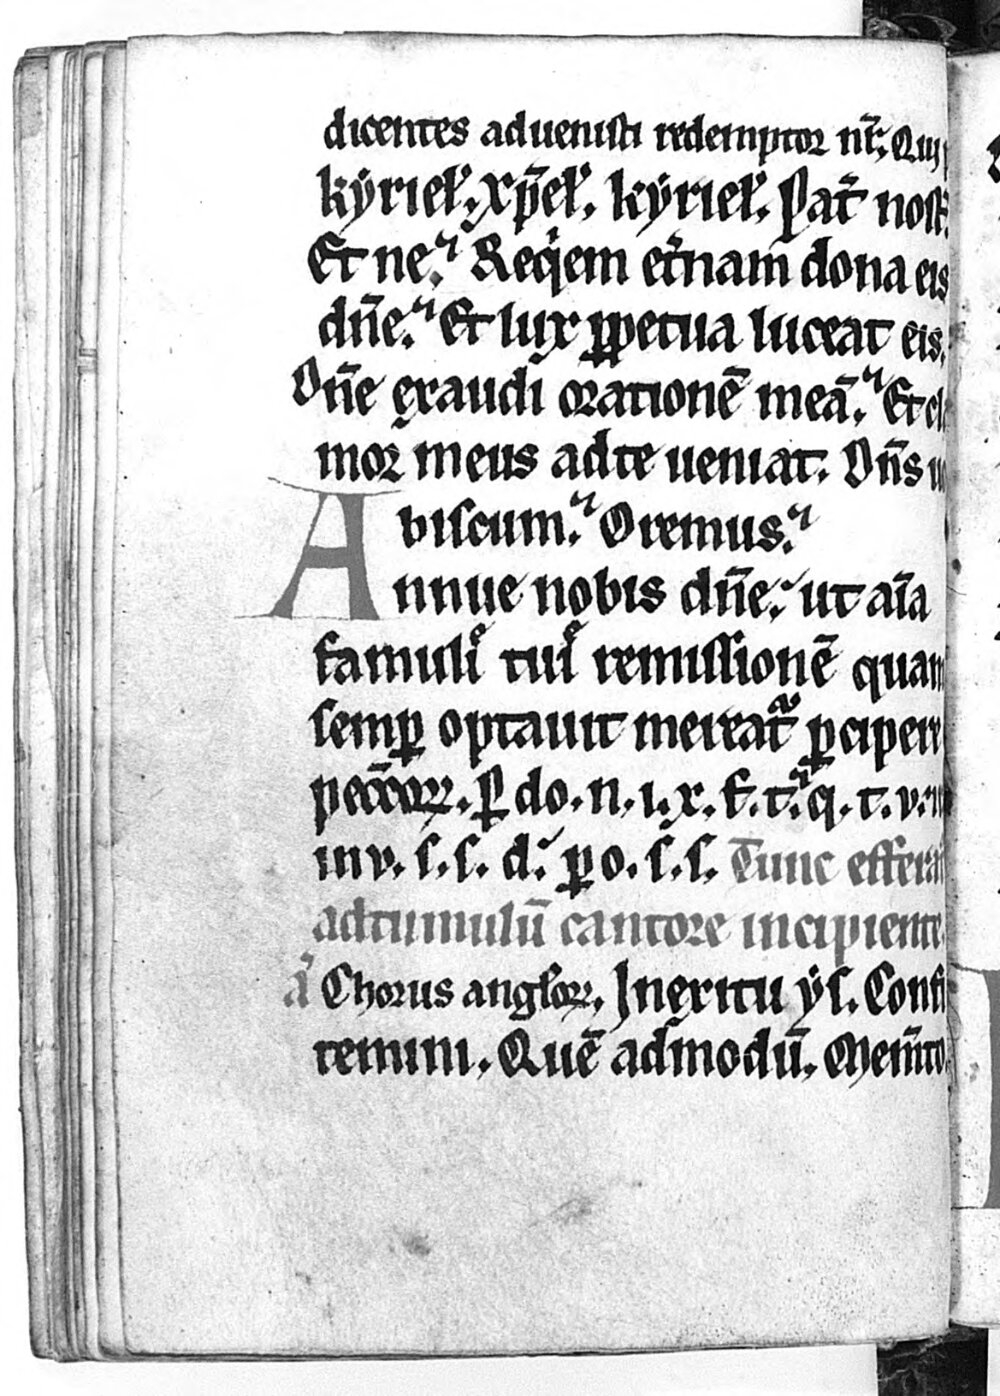 dicentes aduenisti redemptor nr̄; Qui
kẏrieł. xp̄eł. kẏrieł. Pat̄ nost̄.
Et ne. Reqͥem et̾nam dona eis
dn̄e. Et lux ꝑpetua luceat eis.
Dn̄e exaudi orationē meā. Et cla
mor meus adte ueniat. Dn̄s uo
biscum. Oremus.
Annue nobis dn̄e. ut aīa
famuli tui remissionē quam
semꝑ optauit mereat̄ ꝑcipere
pecc̄oꝝ. ꝑ do. n. i. x. f. t. q. t. v.
in v. s. s. d. ꝑ o. s. s. Tunc efferat̄
adtumulū cantore incipiente
a̾ Chorus angłoꝝ. Inexitu ẏs. Confi
temini. Quē admodū. Mem̄to